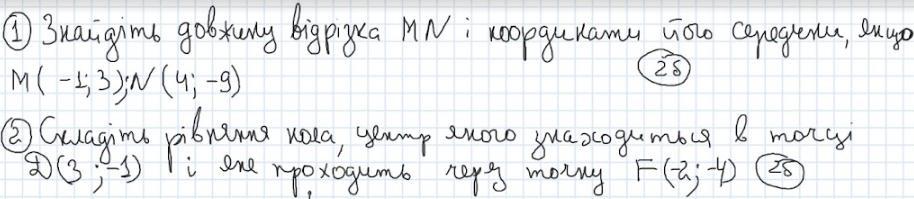 ① Знайдіть довжину відрізка MN і координати його середини, якщо
M(-1; 3); N(4; -9) (2б)
② Складіть рівняння кола, центр якого знаходиться в точці
D(3; -1) і яке проходить через точку F(-2; -4) (2б)